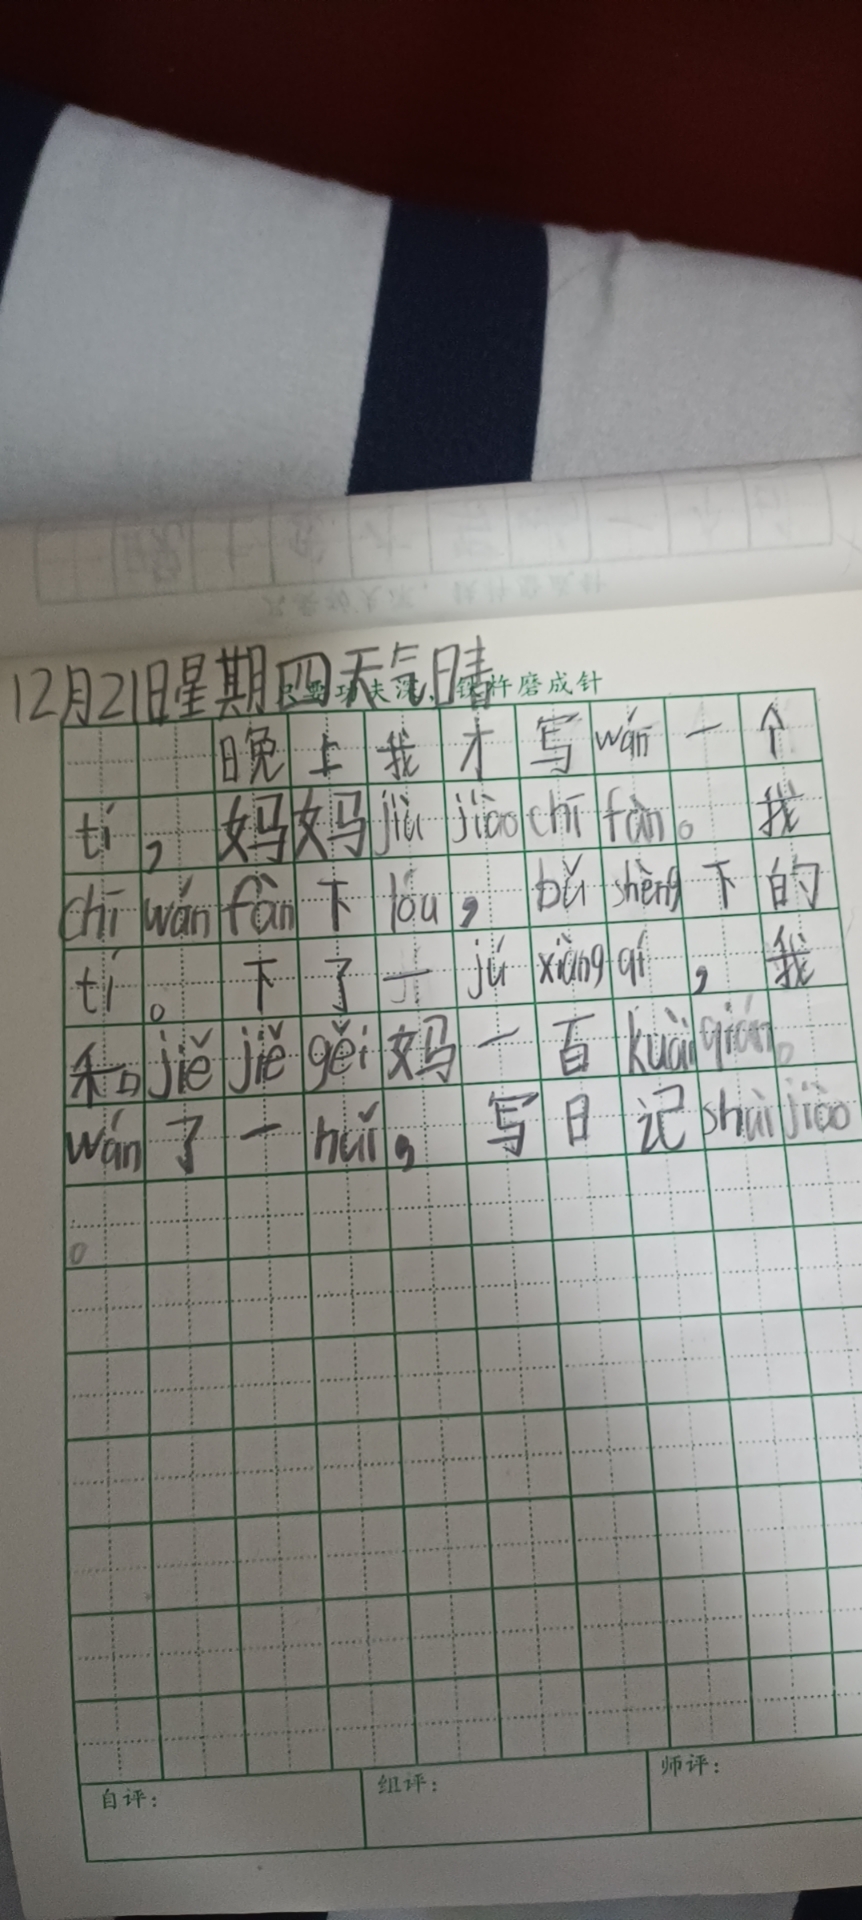 只要功夫深，铁杵磨成针
12月21日星期四天气晴
晚上我才写wán一个
tí，妈妈jiù jiào chī fàn。我
chī wán fàn下lóu，bǔ shèng下的
tí。下了一jú xiàng qí，我
和jiě jiě gěi妈一百kuài qián。
wán了一huǐ，写日记shuì jiào
。
自评： 组评： 师评：